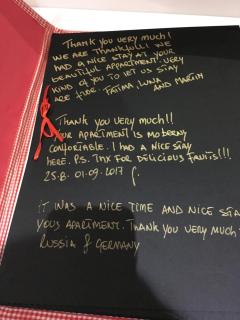 THANK YOU VERY MUCH!
WE ARE THANKFULL! WE
HAD A NICE STAY AT YOUR
BEAUTIFUL APPARTMENT. VERY
KIND OF YOU TO LET US STAY
FATIMA, LUNA AND MARTIN
THANK YOU VERY MUCH!!
YOUR APARTMENT IS MODERN,
COMFORTABLE. I HAD A NICE STAY
HERE. P.S. TNX FOR DELICIOUS
25.8. 01.09.2017
IT WAS A NICE TIME AND NICE STA
YOUS APARTMENT. THANK YOU VERY MUCH
RUSSIA & GERMANY